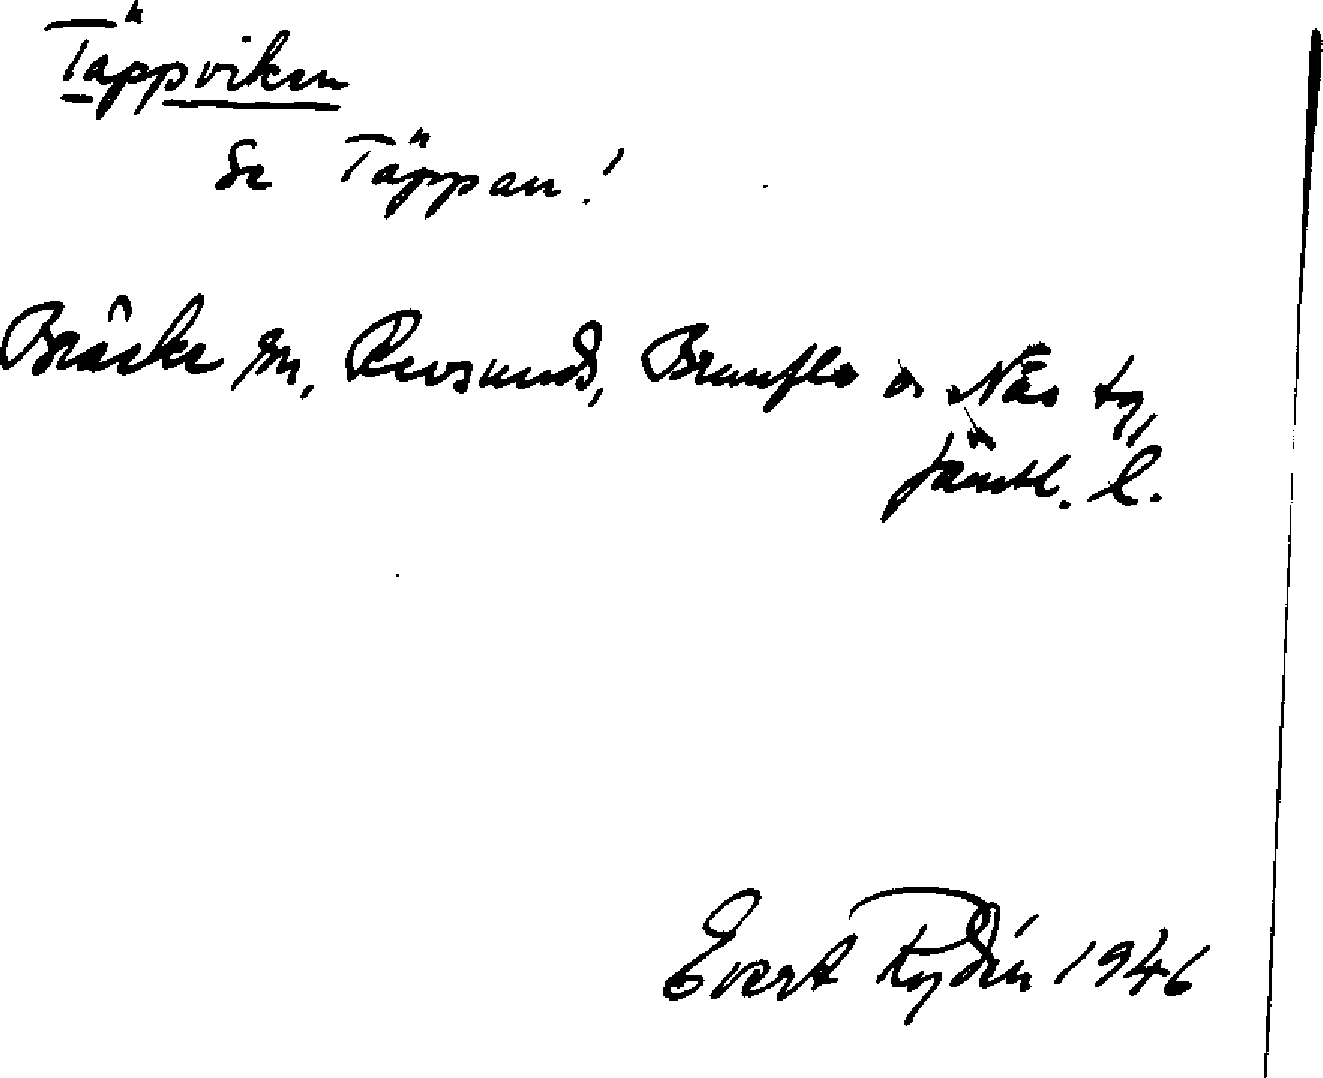 Täppviken
Se Täppan!
Bräcke sn, Revsunds, Brunflo o Näs tg,
Jämtl. l.
Evert Rydén 1946